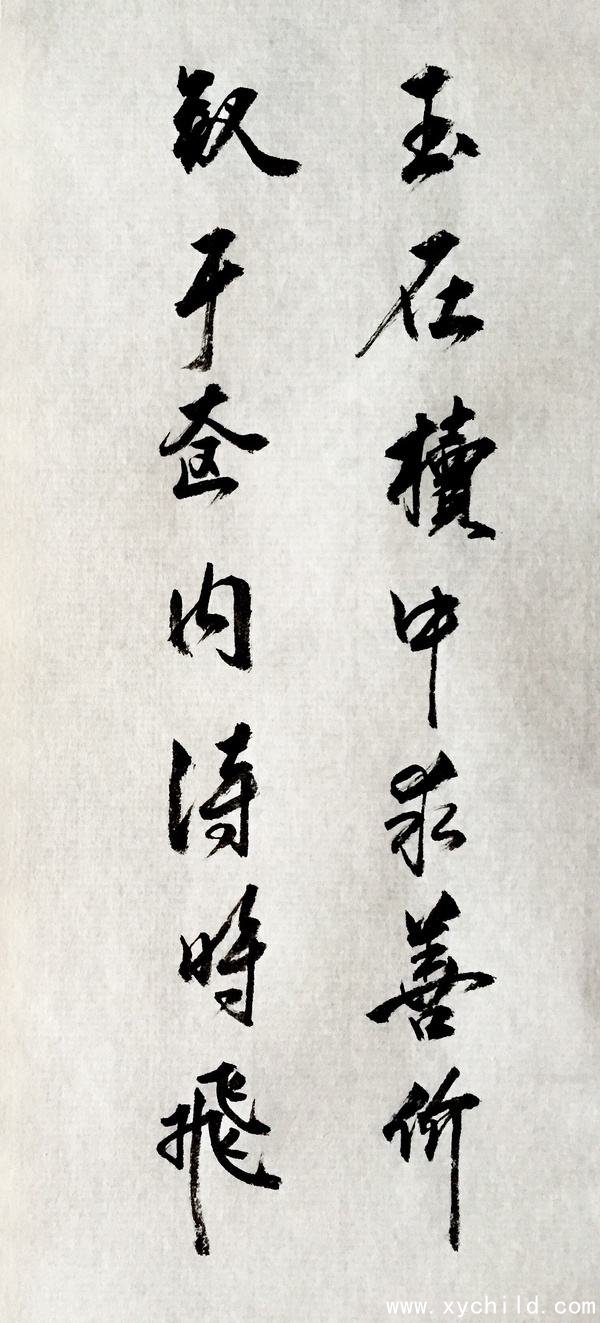 玉在櫝中求善价
釵于奁内待時飛
www.xychild.com